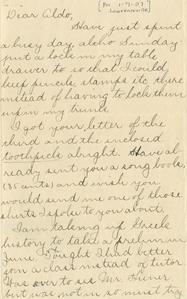 Dear Aldo,
Have just spent
a busy day also Sunday
put a lock in my table
drawer to so that I could
keep pencils, stamps etc there
instead of having to lock them
up in my trunk.
I got your letter of the
third and the inclosed
toothpick alright. Have al
ready sent you a song book,
(35 cents) and wish you
would send me one of those
shirts I spoke to you about.
I am taking up Greek
history to take a prelim in
June. Thought I had better
join a class instead of tutor
Was over to see Mr.
but was not in so must try